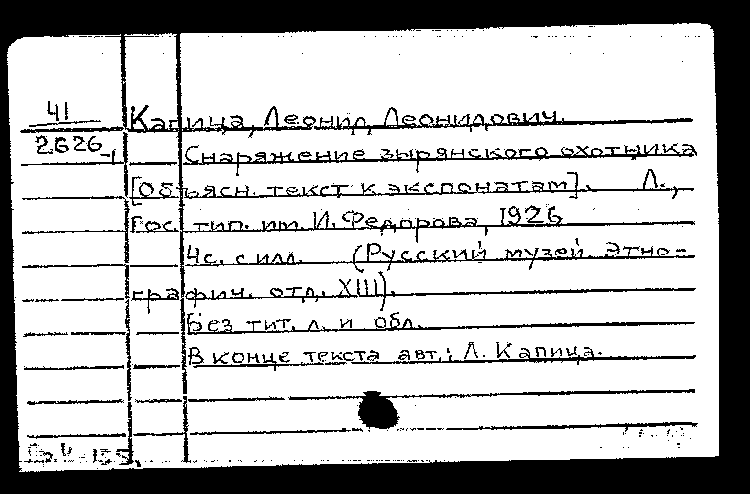 41
Капица, Леонид Леонидович.
2626-1
Снаряжение зырянского охотника
[Объясн. текст к экспонатам]. Л.,
Гос. тип. им. И. Федорова, 1926
4с. с илл. (Русский музей. Этно-
графич. отд. XIII).
Без тит. л. и обл.
В конце текста авт.: Л. Капица.